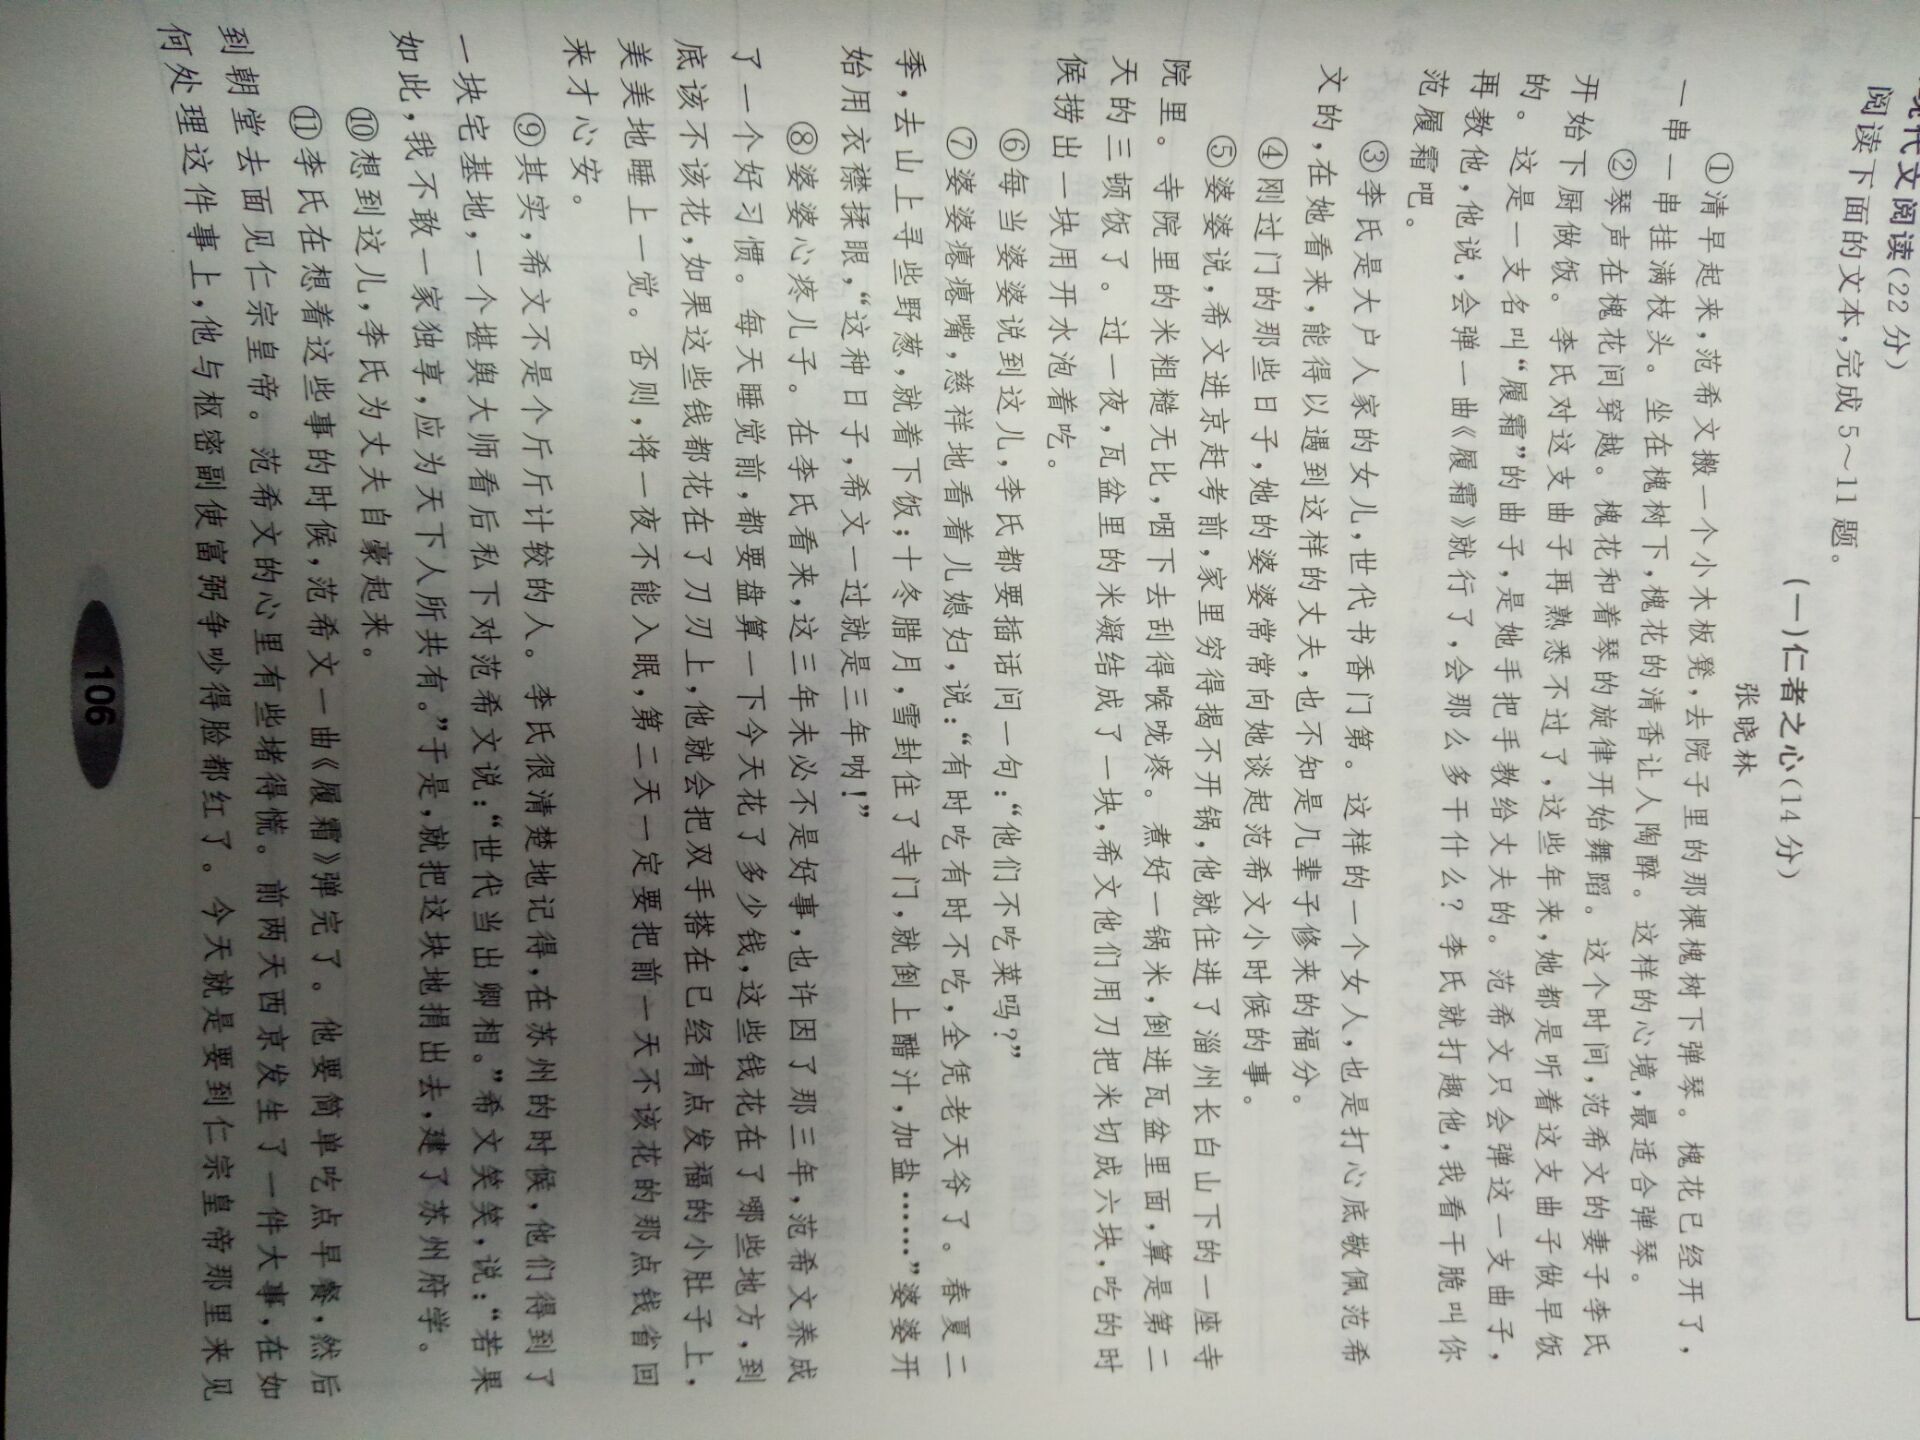 现代文阅读(22分)
阅读下面的文本,完成5~11题。
(一)仁者之心(14分)
张晓林
①清早起来,范希文搬一个小木板凳,去院子里的那棵槐树下弹琴。槐花已经开了,
一串一串挂满枝头。坐在槐树下,槐花的清香让人陶醉。这样的心境,最适合弹琴。
②琴声在槐花间穿越。槐花和着琴的旋律开始舞蹈。这个时间,范希文的妻子李氏
开始下厨做饭。李氏对这支曲子再熟悉不过了,这些年来,她都是听着这支曲子做早饭
的。这是一支名叫“履霜”的曲子,是她手把手教给丈夫的。范希文只会弹这一支曲子,
再教他,他说,会弹一曲《履霜》就行了,会那么多干什么?李氏就打趣他,我看干脆叫你
范履霜吧。
③李氏是大户人家的女儿,世代书香门第。这样的一个女人,也是打心底敬佩范希
文的,在她看来,能得以遇到这样的丈夫,也不知是几辈子修来的福分。
④刚过门的那些日子,她的婆婆常常向她谈起范希文小时候的事。
⑤婆婆说,希文进京赶考前,家里穷得揭不开锅,他就住进了淄州长白山下的一座寺
院里。寺院里的米粗糙无比,咽下去刮得喉咙疼。煮好一锅米,倒进瓦盆里面,算是第二
天的三顿饭了。过一夜,瓦盆里的米凝结成了一块,希文他们用刀把米切成六块,吃的时
候捞出一块用开水泡着吃。
⑥每当婆婆说到这儿,李氏都要插话问一句:“他们不吃菜吗?”
⑦婆婆瘪瘪嘴,慈祥地看着儿媳妇,说:“有时吃有时不吃,全凭老天爷了。春夏二
季,去山上寻些野葱,就着下饭;十冬腊月,雪封住了寺门,就倒上醋汁,加盐……”婆婆开
始用衣襟揉眼,“这种日子,希文一过就是三年呐!”
⑧婆婆心疼儿子。在李氏看来,这三年未必不是好事,也许因了那三年,范希文养成
了一个好习惯。每天睡觉前,都要盘算一下今天花了多少钱,这些钱花在了哪些地方,到
底该不该花,如果这些钱都花在了刀刃上,他就会把双手搭在已经有点发福的小肚子上,
美美地睡上一觉。否则,将一夜不能入眠,第二天一定要把前一天不该花的那点钱省回
来才心安。
⑨其实,希文不是个斤斤计较的人。李氏很清楚地记得,在苏州的时候,他们得到了
一块宅基地,一个堪舆大师看后私下对范希文说:“世代当出卿相。”希文笑笑,说:“若果
如此,我不敢一家独享,应为天下人所共有。”于是,就把这块地捐出去,建了苏州府学。
⑩想到这儿,李氏为丈夫自豪起来。
⑪李氏在想着这些事的时候,范希文一曲《履霜》弹完了。他要简单吃点早餐,然后
到朝堂去面见仁宗皇帝。范希文的心里有些堵得慌。前两天西京发生了一件大事,在如
何处理这件事上,他与枢密副使富弼争吵得脸都红了。今天就是要到仁宗皇帝那里来见
106